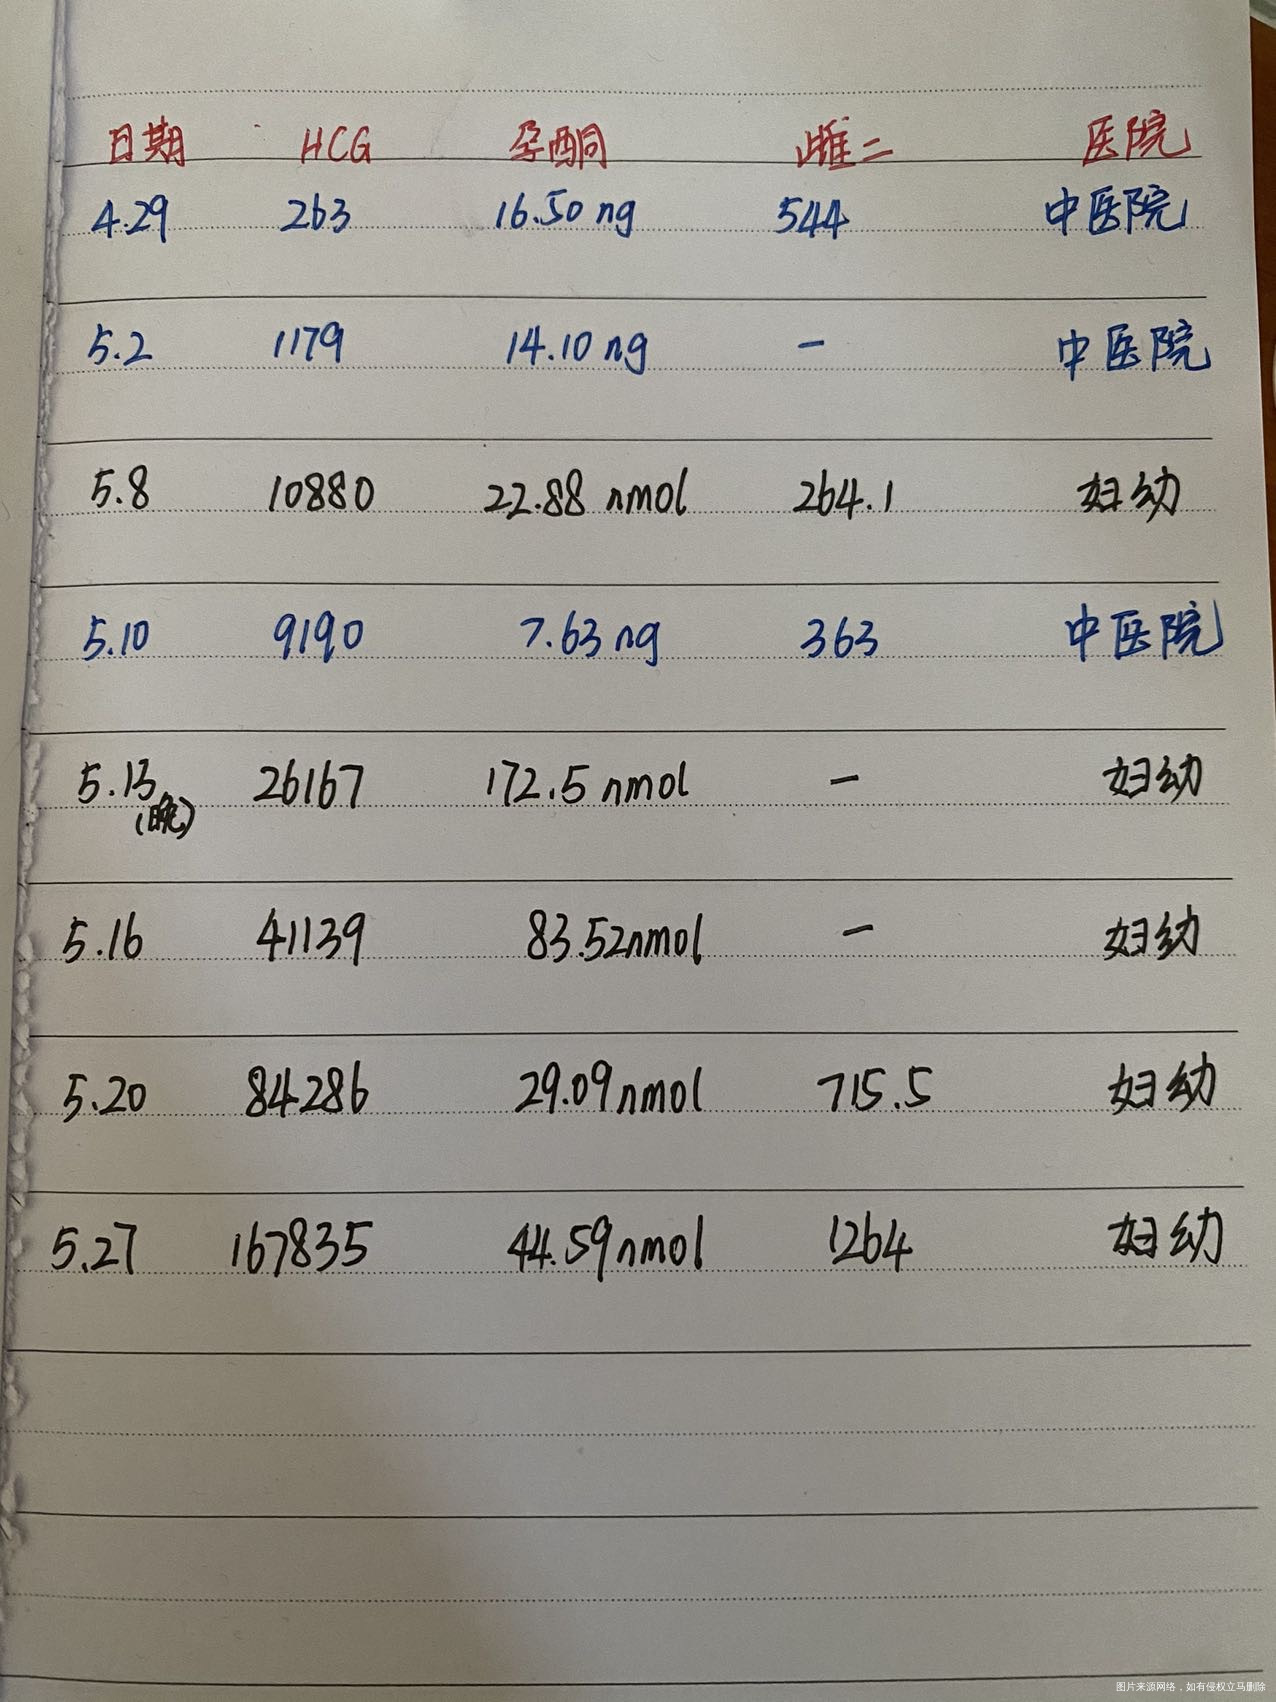 日期 HCG 孕酮 雌二 医院
4.29 263 16.50 ng 544 中医院
5.2 1179 14.10 ng - 中医院
5.8 10880 22.88 nmol 264.1 妇幼
5.10 9190 7.63 ng 363 中医院
5.13 26167 172.5 nmol - 妇幼
(晚)
5.16 41139 83.52nmol - 妇幼
5.20 84286 29.09nmol 715.5 妇幼
5.27 167835 44.59nmol 1264 妇幼
图片来源网络，如有侵权立马删除